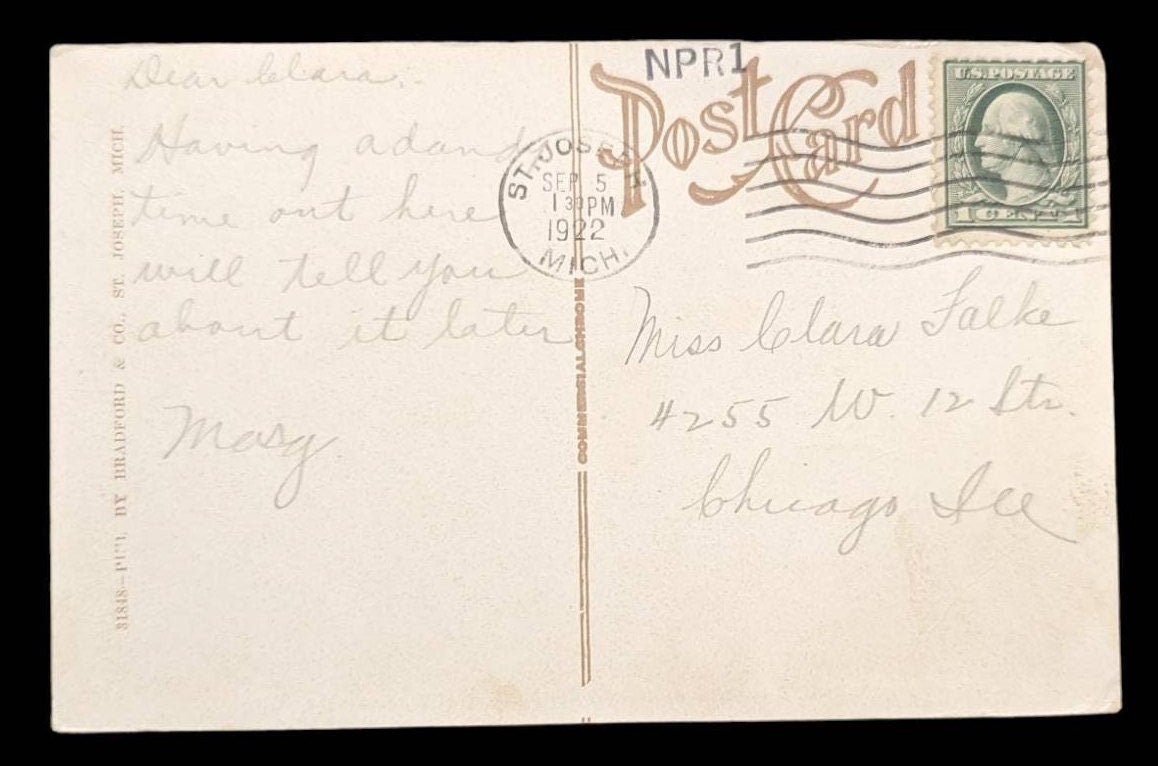 Dear Clara:-
Having a dandy
time out here
will tell you
about it later
Mary.
31848-PUB. BY BRADFORD & CO., ST. JOSEPH, MICH.
COMMERCIALCHROME
NPR1
Post Card
U.S. POSTAGE
1 CENT 1
ST. JOSEPH
SEP 5
1 30 PM
1922
MICH.
Miss Clara Falke
4255 W. 12 Str.
Chicago Ill